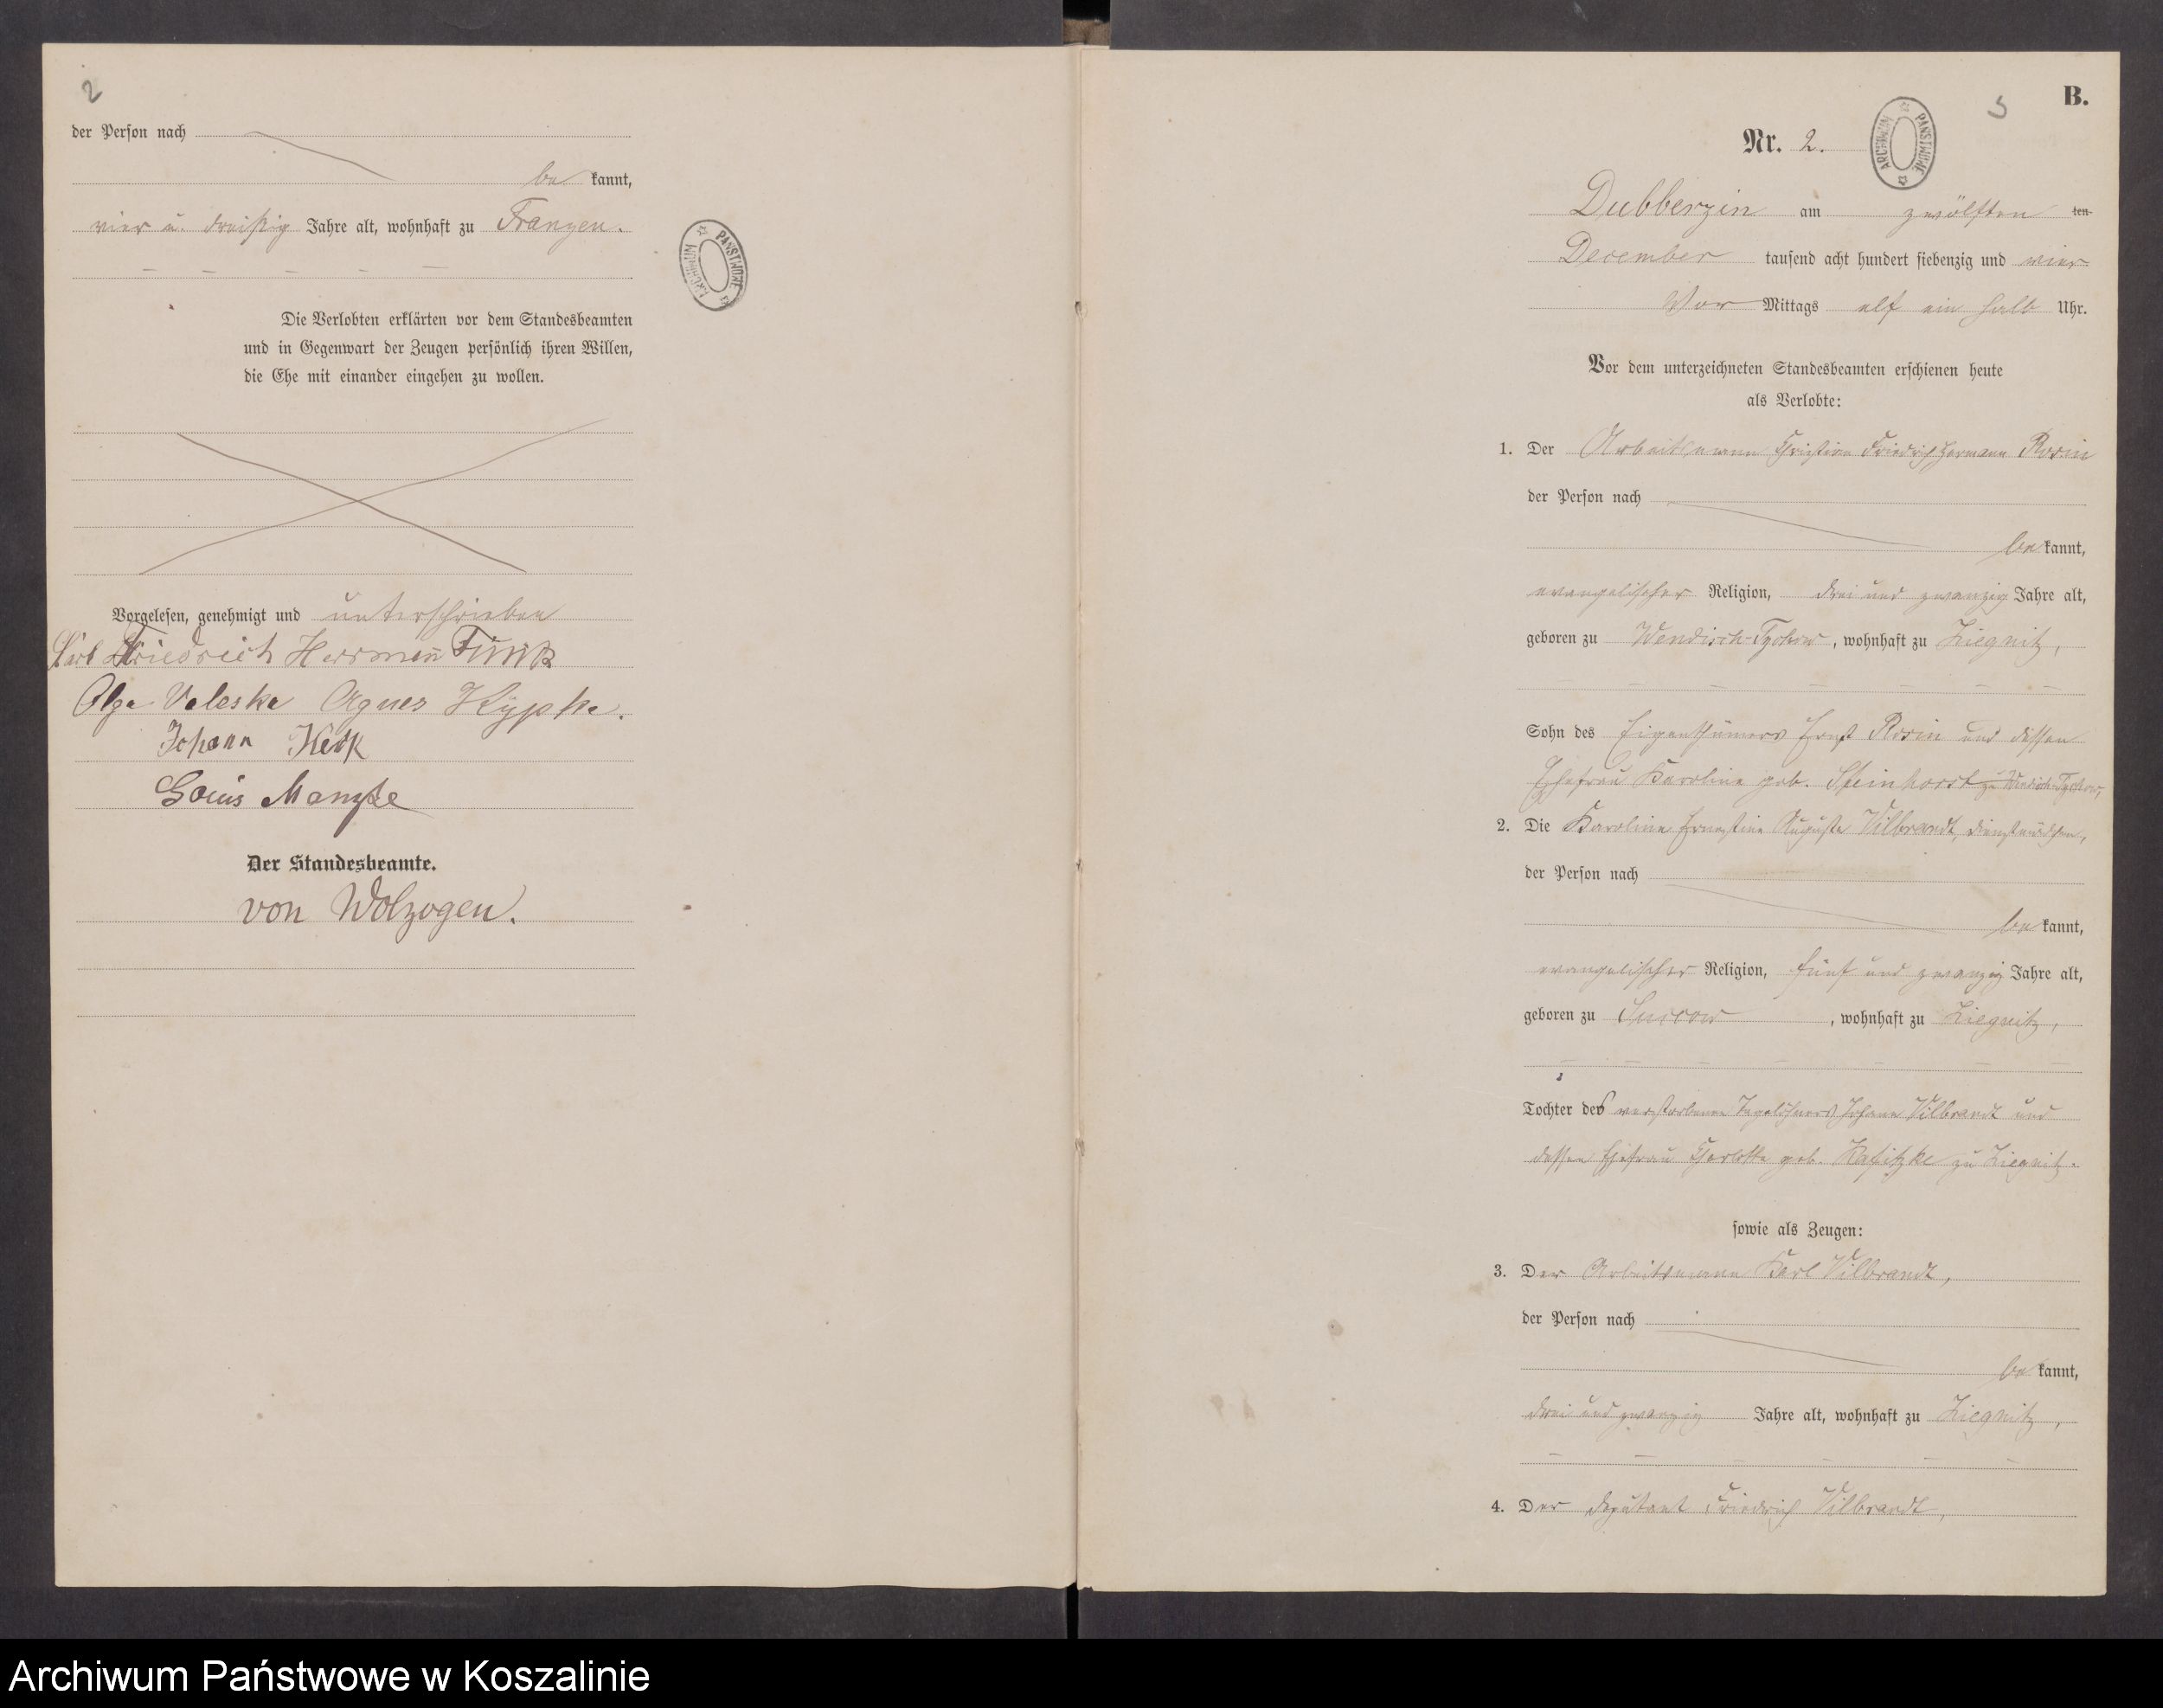 2
der Person nach
be kannt,
vier u. dreißig Jahre alt, wohnhaft zu Franzen.
ARCHIWUM PAŃSTWOWE
Die Verlobten erklärten vor dem Standesbeamten
und in Gegenwart der Zeugen persönlich ihren Willen,
die Ehe mit einander eingehen zu wollen.
Vorgelesen, genehmigt und unterschrieben
Friedrich Herrmann
Olga Valeska Agnes Kÿpke.
Johann
Louis Manzke
Der Standesbeamte.
von Wolzogen.
B.
Nr. 2.
ARCHIWUM PAŃSTWOWE
Dubberzin am zwölften ten
December tausend acht hundert siebenzig und vier
Vor Mittags elf ein halb Uhr.
Vor dem unterzeichneten Standesbeamten erschienen heute
als Verlobte:
1. Der Arbeitsmann Christian Friedrich Hermann Rosin
der Person nach
be kannt,
evangelischer Religion, drei und zwanzig Jahre alt,
geboren zu Wendisch-Tychow, wohnhaft zu Ziegnitz,
Sohn des Eigenthümers Ernst Rosin und dessen
Ehefrau Karoline geb. Steinhorst zu Wendisch-Tychow,
2. Die Karoline Ernestine Auguste Vilbrandt, Dienstmädchen,
der Person nach
be kannt,
evangelischer Religion, fünf und zwanzig Jahre alt,
geboren zu Succow, wohnhaft zu Ziegnitz,
Tochter des verstorbenen Tagelöhners Johann Vilbrandt und
dessen Ehefrau Charlotte geb. zu Ziegnitz.
sowie als Zeugen:
3. Der Arbeitsmann Karl Vilbrandt,
der Person nach
be kannt,
drei und zwanzig Jahre alt, wohnhaft zu Ziegnitz,
4. Der Deputant Friedrich Vilbrandt,
Archiwum Państwowe w Koszalinie